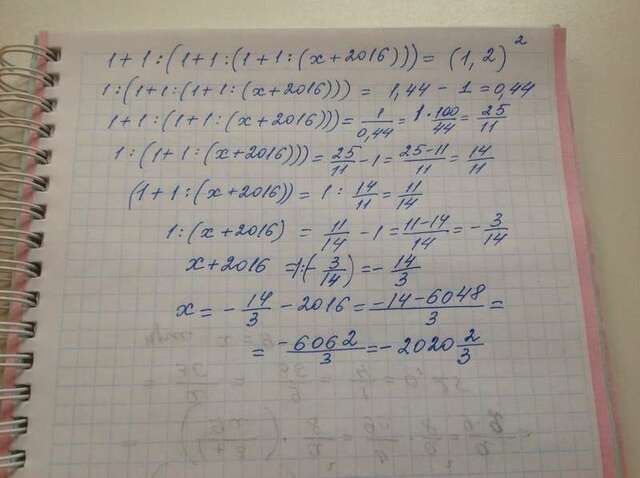 1+1:(1+1:(1+1:(x+2016)))= (1,2)²
1:(1+1:(1+1:(x+2016))) = 1,44 - 1 = 0,44
1+1:(1+1:(x+2016))= 1/0,44 = 1·100/44 = 25/11
1:(1+1:(x+2016)))= 25/11 - 1 = 25-11/11 = 14/11
(1+1:(x+2016))= 1: 14/11 = 11/14
1:(x+2016) = 11/14 - 1 = 11-14/14 = - 3/14
x+2016 = 1:(- 3/14) = - 14/3
x = - 14/3 - 2016 = -14-6048/3 =
= -6062/3 = -2020 2/3